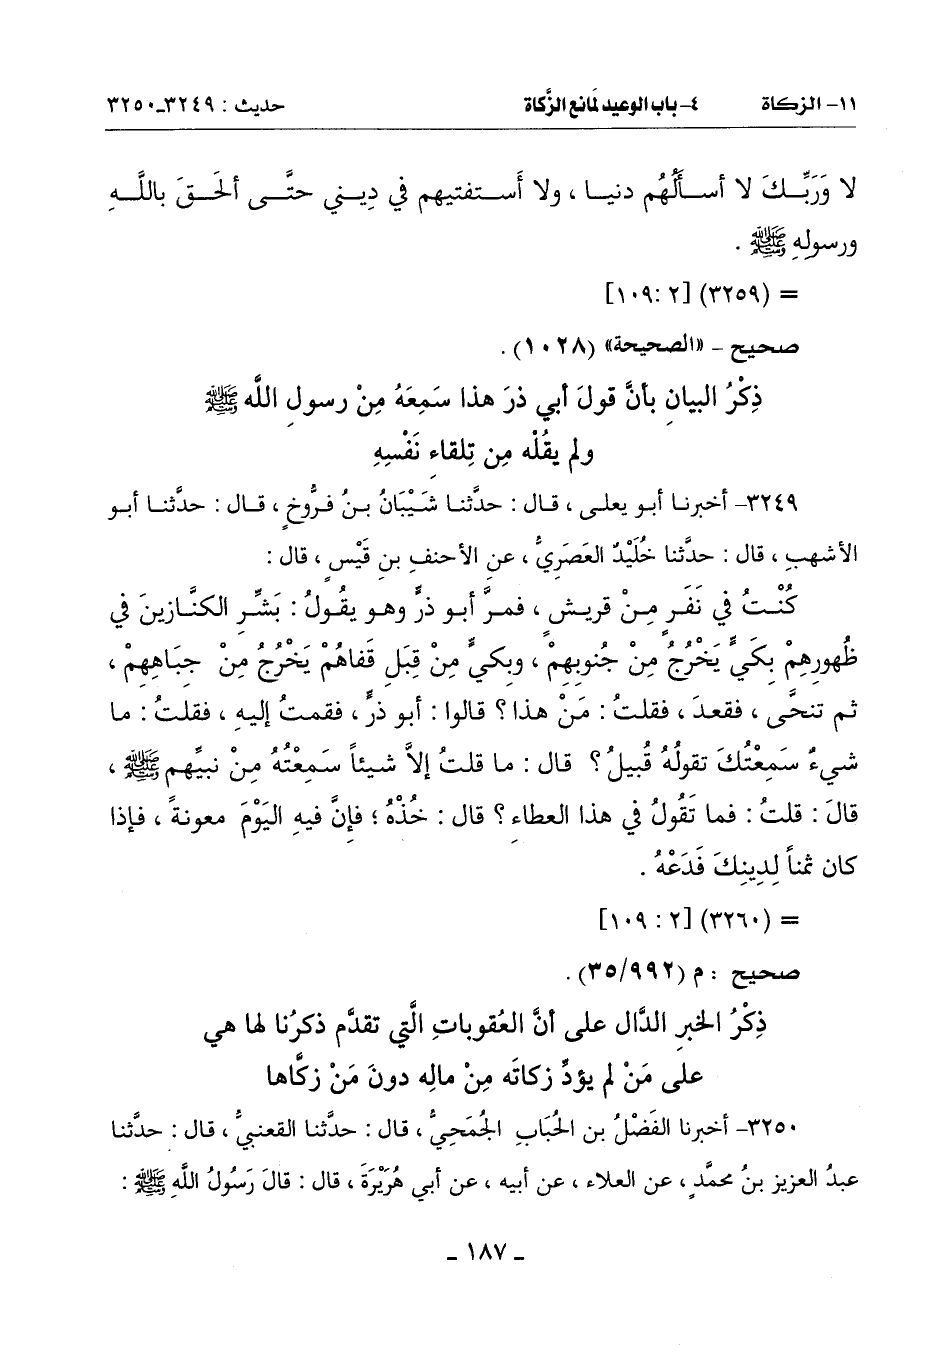 ١١- الزكاة ٤- باب الوعيد لمانع الزَّكاة حديث : ٣٢٤٩-٣٢٥٠
لا وَرَبِّـكَ لا أسـألُهُم دنيـا ، ولا أَسـتفتيهم في دِيـني حتَّـى ألحَـقَ باللَّـهِ
ورسولِهِ ﷺ .
= (٣٢٥٩) [٢ :١٠٩]
صحيح - «الصحيحة» (١٠٢٨) .
ذِكْرُ البيانِ بأنَّ قولَ أبي ذرَ هذا سَمِعَهُ مِنْ رسولِ اللَّه ﷺ
ولم يقُلْه مِن تِلقاءِ نَفْسِهِ
٣٢٤٩- أخبرنـا أبـو يعلـى ، قـال : حدَّثنـا شَيْبَانُ بـنُ فـرُّوخٍ ، قـال : حدَّثنـا أبو
الأشهبِ ، قال : حدَّثنا خُلَيْدٌ العَصَرِيُّ ، عنِ الأحنفِ بنِ قَيْسٍ ، قال :
كُنْـتُ في نَفَـرٍ مِـنْ قريـشٍ ، فمـرَّ أبـو ذرٍّ وهـو يقُـولُ : بَشِّـرِ الكنَّـازينَ في
ظُهورِهِمْ بِكَيٍّ يَخْرُجُ مِنْ جُنوبِهِمْ ، وبكيٍّ مِنْ قِبَلِ قَفاهُمْ يَخْرُجُ مِنْ جِبَاهِهِمْ ،
ثم تنحَّى ، فقعدَ ، فقلتُ : مَنْ هذا ؟ قالوا : أبو ذرٍّ ، فقمتُ إليهِ ، فقلتُ : ما
شيءٌ سَمِعْتُكَ تقولُهُ قُبيلُ ؟ قال : ما قلتُ إلاَّ شيئاً سَمِعْتُهُ مِنْ نبيِّهم ﷺ ،
قالَ : قلتُ : فما تَقُولُ في هذا العطاءِ ؟ قال : خُذْهُ ؛ فإنَّ فيهِ اليَوْمَ معونةً ، فإذا
كان ثمناً لِدِينِكَ فَدَعْهُ .
= (٣٢٦٠) [٢ : ١٠٩]
صحيح : م (٩٩٢/٣٥) .
ذِكْرُ الخبرِ الدَّالِ على أنَّ العُقوباتِ الَّتي تقدَّم ذكرُنا لها هي
على مَنْ لم يؤدِّ زكاتَه مِنْ مالِه دونَ مَنْ زكَّاها
٣٢٥٠- أخبرنا الفَضْلُ بن الحُبَاب الجُمَحِيُّ ، قال : حدَّثنا القعنبيُّ ، قال : حدَّثنا
عبدُ العزيز بنُ محمَّدٍ ، عن العلاء ، عن أبيه ، عن أبي هُرَيْرَةَ ، قال : قالَ رَسُولُ اللَّهِ ﷺ :
- ١٨٧ -